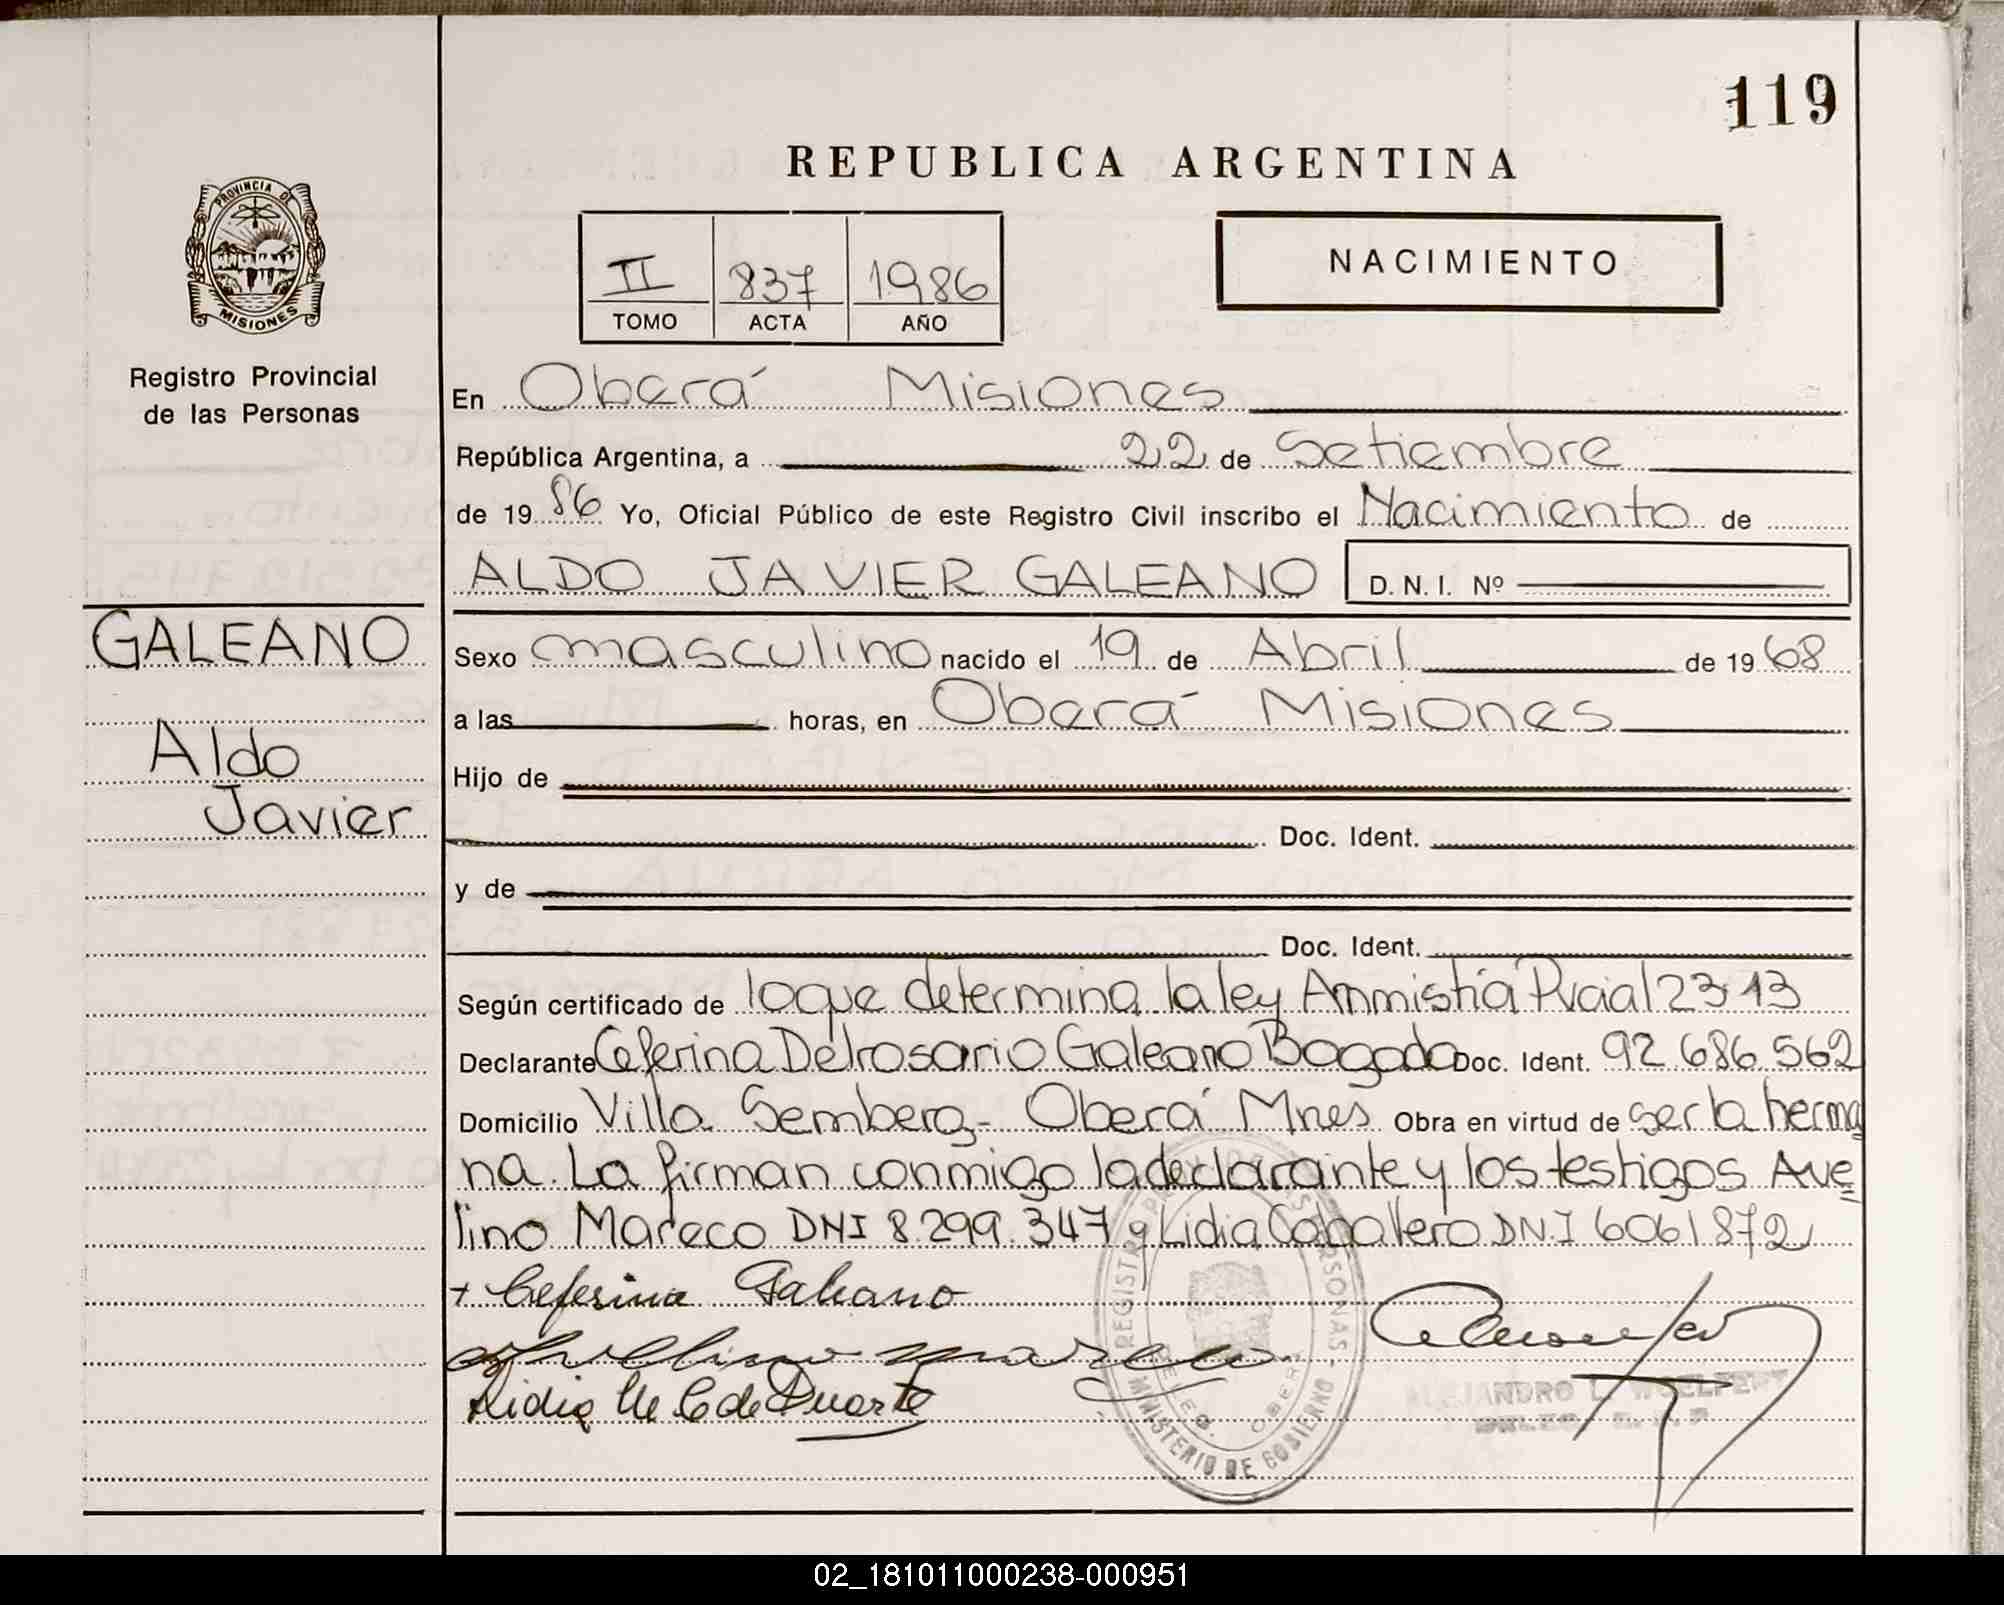 119
REPUBLICA ARGENTINA
PROVINCIA DE
MISIONES
Registro Provincial
de las Personas
II 837 1986
TOMO ACTA AÑO
NACIMIENTO
En Oberá Misiones
República Argentina, a 22 de Setiembre
de 1986 Yo, Oficial Público de este Registro Civil inscribo el Nacimiento de
ALDO JAVIER GALEANO D.N.I. Nº
GALEANO
Aldo
Javier
Sexo masculino nacido el 19 de Abril de 1968
a las horas, en Oberá Misiones
Hijo de
Doc. Ident.
y de
Doc. Ident.
Según certificado de loque determina la ley Ammistía Pvcial 2313
Declarante Ceferina Delrosario Galeano Bogado Doc. Ident. 92.686.562
Domicilio Villa Semberg- Oberá Mnes Obra en virtud de ser la herma
na. La firman conmigo la declarante y los testigos Ave=
lino Mareco DNI 8.299.347 y Lidia Caballero DN.I 6061872
+ Ceferina Galeano
Avellino Mareco
Lidia M C de Duarte
MINISTERIO DE GOBIERNO
ALEJANDRO L. WOELFERT
02_181011000238-000951